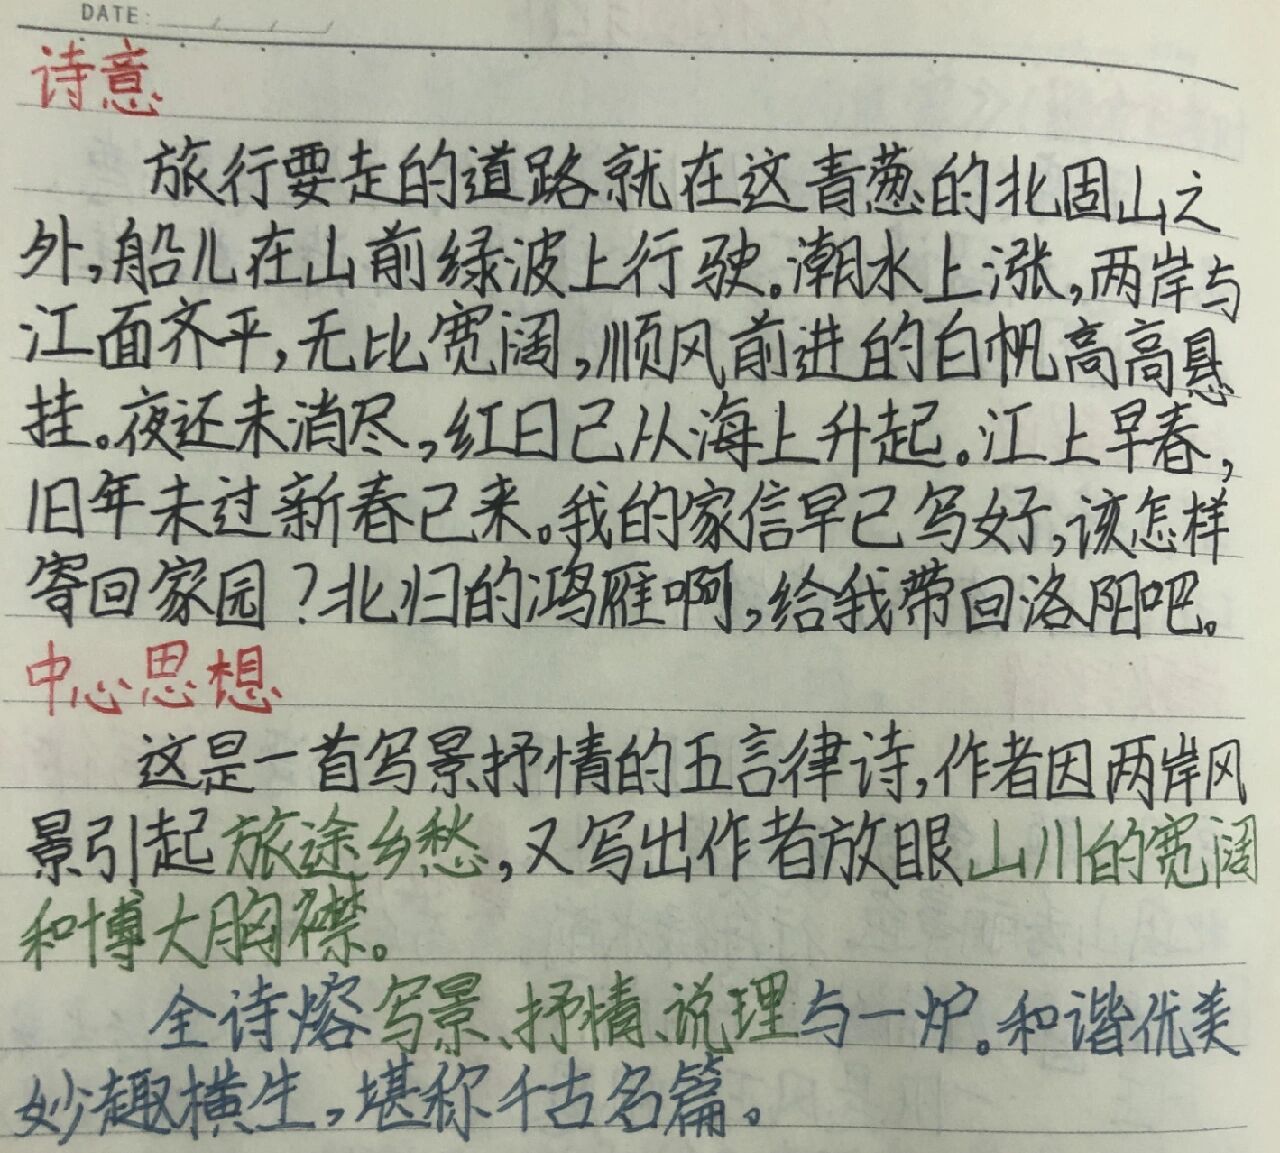 DATE: / / /
诗意
旅行要走的道路就在这青葱的北固山之
外,船儿在山前绿波上行驶。潮水上涨,两岸与
江面齐平,无比宽阔,顺风前进的白帆高高悬
挂。夜还未消尽,红日已从海上升起。江上早春,
旧年未过新春已来。我的家信早已写好,该怎样
寄回家园?北归的鸿雁啊,给我带回洛阳吧。
中心思想
这是一首写景抒情的五言律诗,作者因两岸风
景引起旅途乡愁,又写出作者放眼山川的宽阔
和博大胸襟。
全诗熔写景、抒情、说理与一炉。和谐优美
妙趣横生,堪称千古名篇。